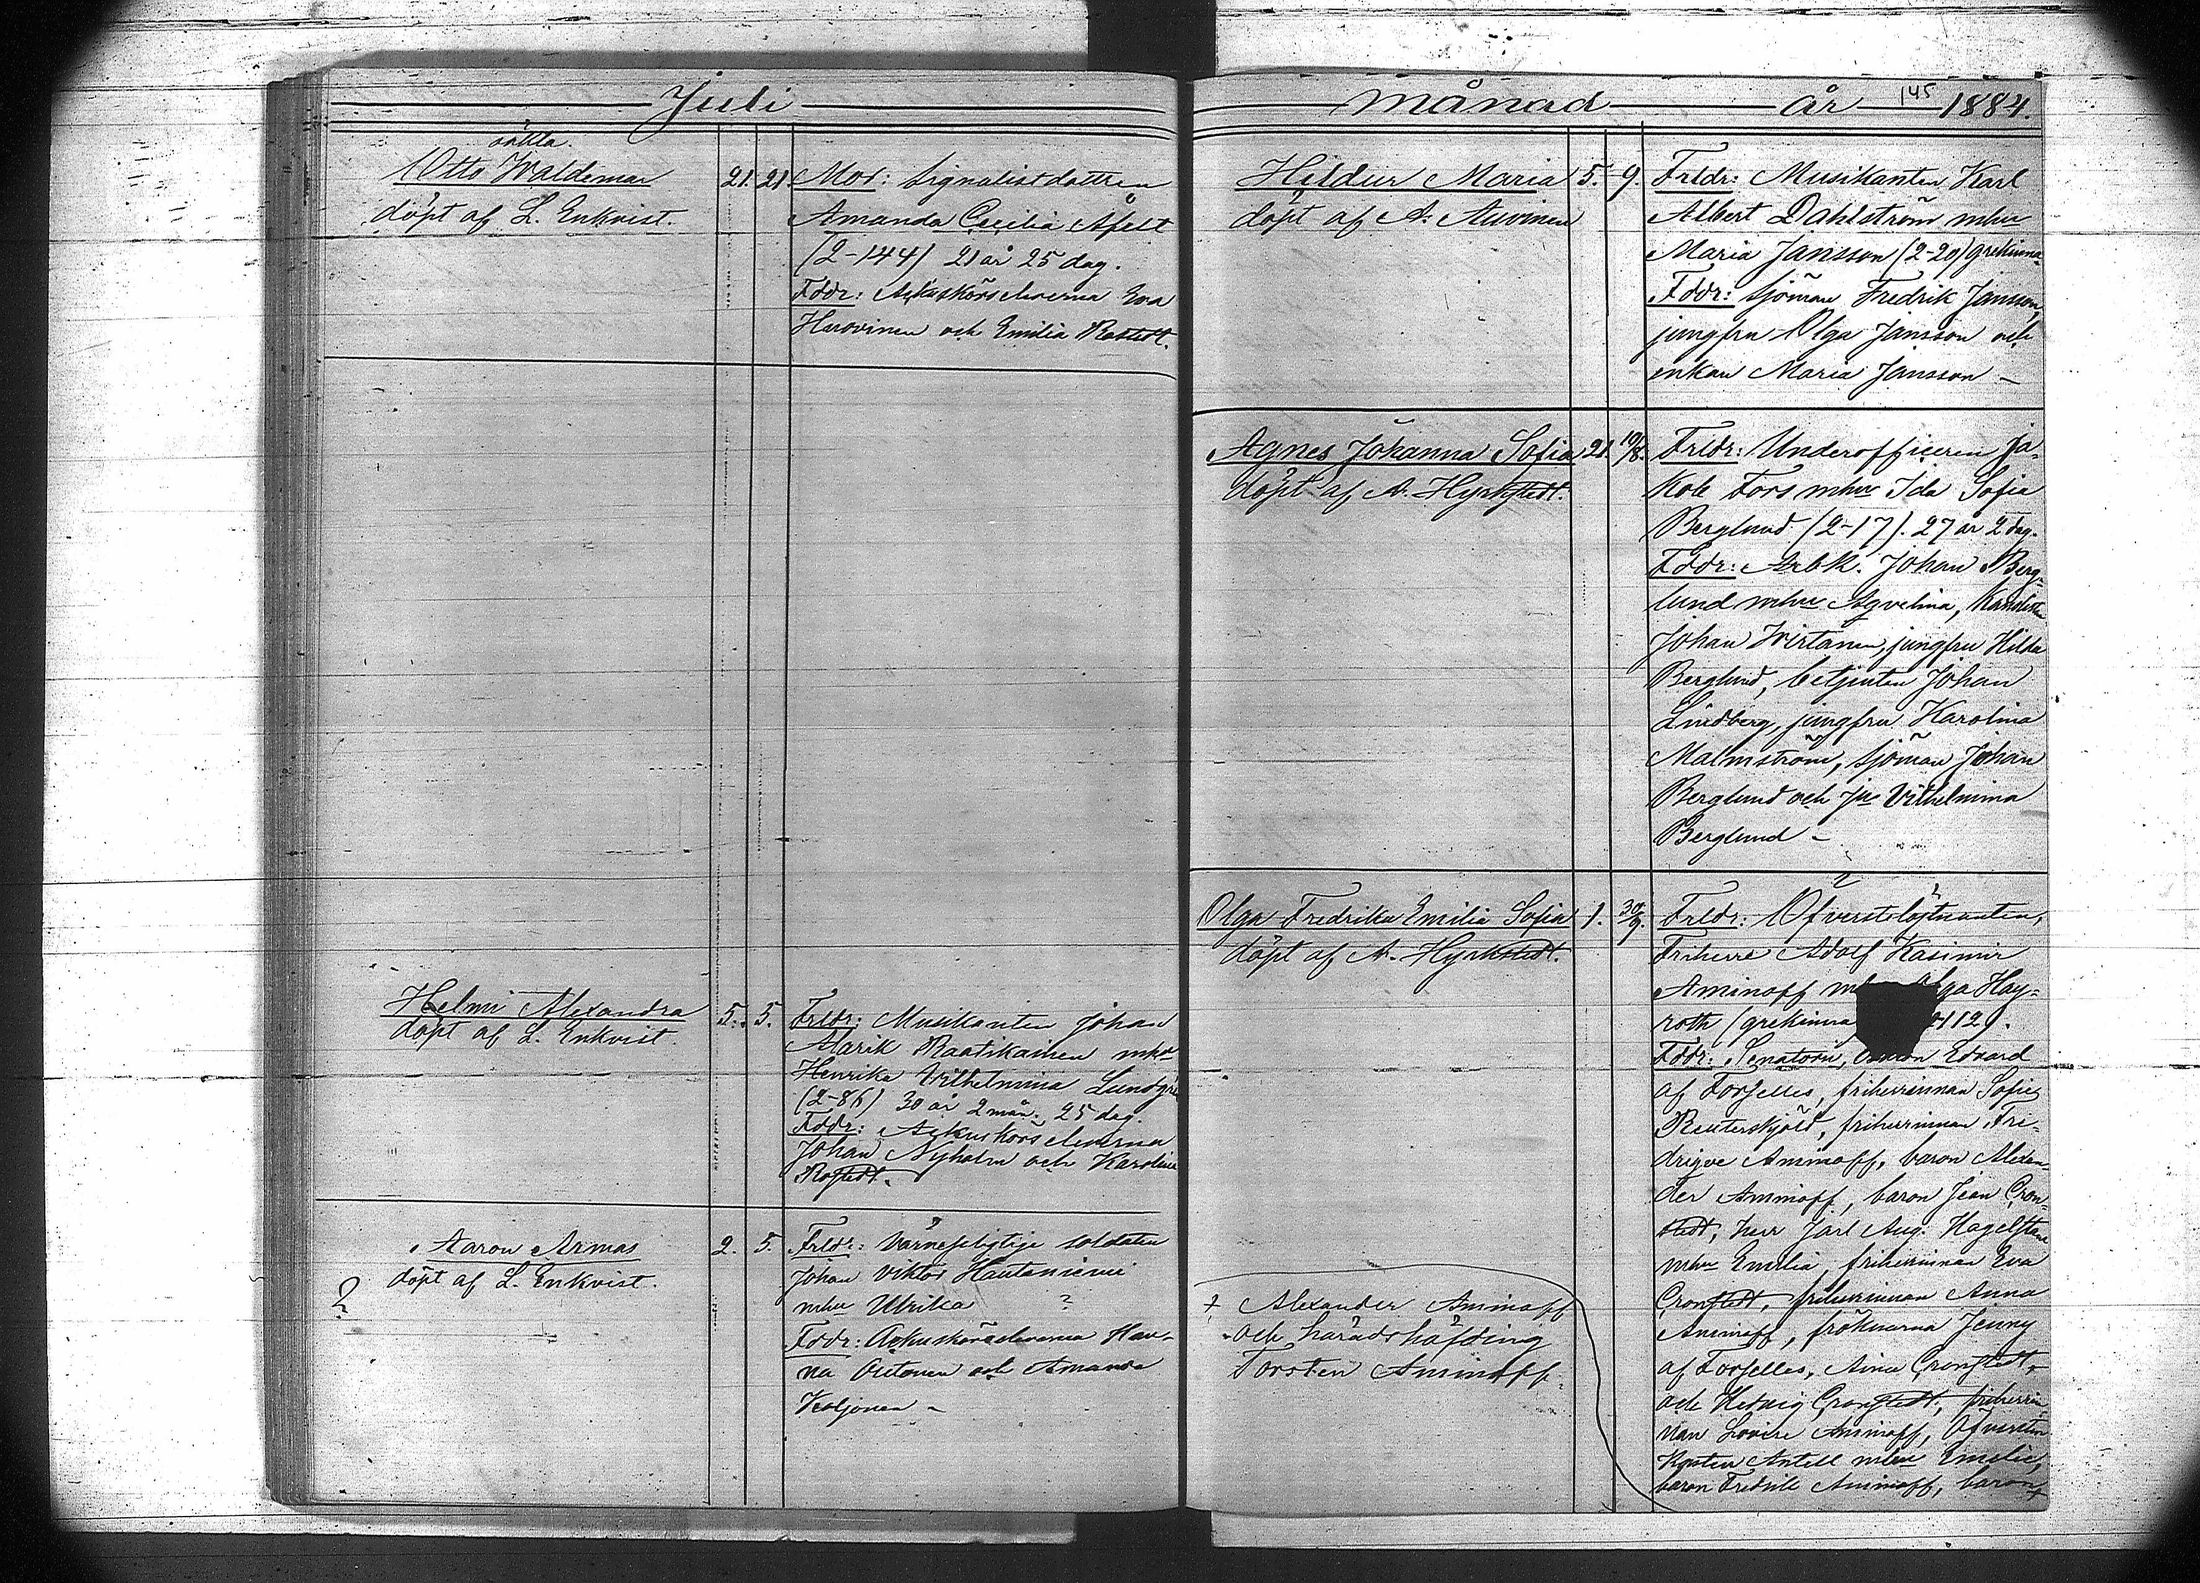 Juli
oäkta.
Otto Waldemar 21. 21. Mor: Signalistdottren
döpt af L. Enkvist. Amanda Cecilia Åfelt
(2-144) 21 år 25 dag.
Fddr: Ackuskörselverna Eva
Hirvinen och Emilia Rostedt.
Helmi Alexandra 5. 5. Frldr: Musikanten Johan
döpt af L. Enkvist. Alarik Raatikainen mhu
Henrika Vilhelmina Lundgre
(2-86) 30 år 2 mån. 25 dag.
Fddr: Ackuskörselverna
Johan Nyholm och Karolina
Rostedt.
2 Aaron Armas 2. 5. Frldr: Värnepligtige soldaten
döpt af L. Enkvist. Johan Viktor Hautaniemi
mhu Ulrika ?
Fddr: Han-
na och Amanda
Koljonen –
månad år 145 1884.
Hildur Maria 5. 9. Frldr: Musikanten Karl
döpt af A. Auvinen Albert Dahlström mhu
Maria Jansson (2-20) grekinna.
Fddr: sjöman Fredrik Jansson,
jungfru Olga Jansson och
enkan Maria Jansson –
Agnes Johanna Sofia 21. 10/8. Frldr: Underofficeren Ja-
döpt af A. Hyrkstedt. kob Fors mhu Ida Sofia
Berglund (2-17). 27 år 2 dag.
Fddr: Arbk. Johan Berg-
lund mhu Agvelina,
Johan Wirtanen, jungfru Hilda
Berglund, betjenten Johan
Lindberg, jungfru Karolina
Malmström, sjöman Johan
Berglund och ju Vilhelmina
Berglund –
Olga Fredrika Emilia Sofia 1. 30/9. Frldr: Öfverstelöjtnanten,
döpt af A. Hyrkstedt. Friherre Adolf Kasimir
Aminoff mhu Olga Hay-
roth (grekinna 2-112).
Fddr: Senatorn, baron Edvard
af Forselles, friherrinnan Sofie
Reuterskjöld, friherrinnan Fre-
drique Aminoff, baron Alexan-
der Aminoff, baron Jean Cron-
stedt, herr Jarl Aug. Hagelstam
mhu Emilia, friherrinnan Eva
Cronstedt, friherrinnan Anna
Aminoff, fröknarna Jenny
af Forselles, Aina Cronstedt,
och Hedvig Cronstedt, friherrin-
nan Lovise Aminoff, Öfversten
Kasten Antell mhu Emelie,
baron Fredrik Aminoff, baron +
+ Alexander Aminoff
och häradshöfding
Torsten Aminoff.